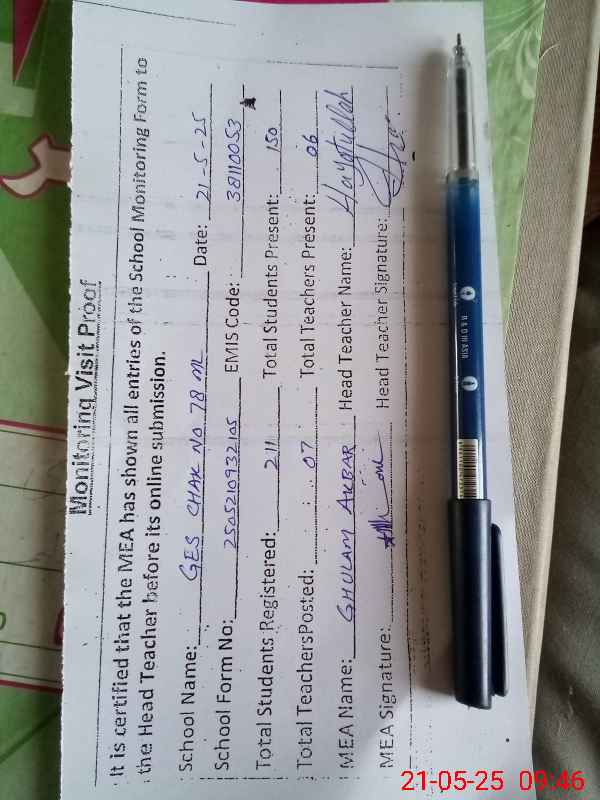 Monitoring Visit Proof
It is certified that the MEA has shown all entries of the School Monitoring Form to
the Head Teacher before its online submission.
School Name: GES CHAK NO 78 ML Date: 21-5-25
School Form No: 2505210932105 EMIS Code: 38110053
Total Students Registered: 211 Total Students Present: 150
Total TeachersPosted: 07 Total Teachers Present: 06
MEA Name: GHULAM AKBAR Head Teacher Name: Hayatullah
MEA Signature: Head Teacher Signature:
21-05-25 09:46